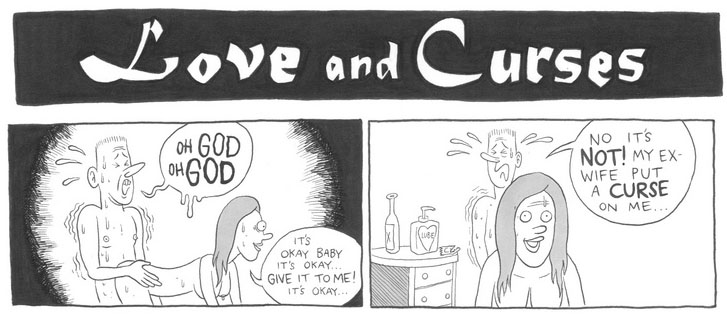 Love and Curses
OH GOD
OH GOD
IT'S
OKAY BABY
IT'S OKAY...
GIVE IT TO ME!
IT'S OKAY...
NO IT'S
NOT! MY EX-
WIFE PUT
A CURSE
ON ME...
LUBE